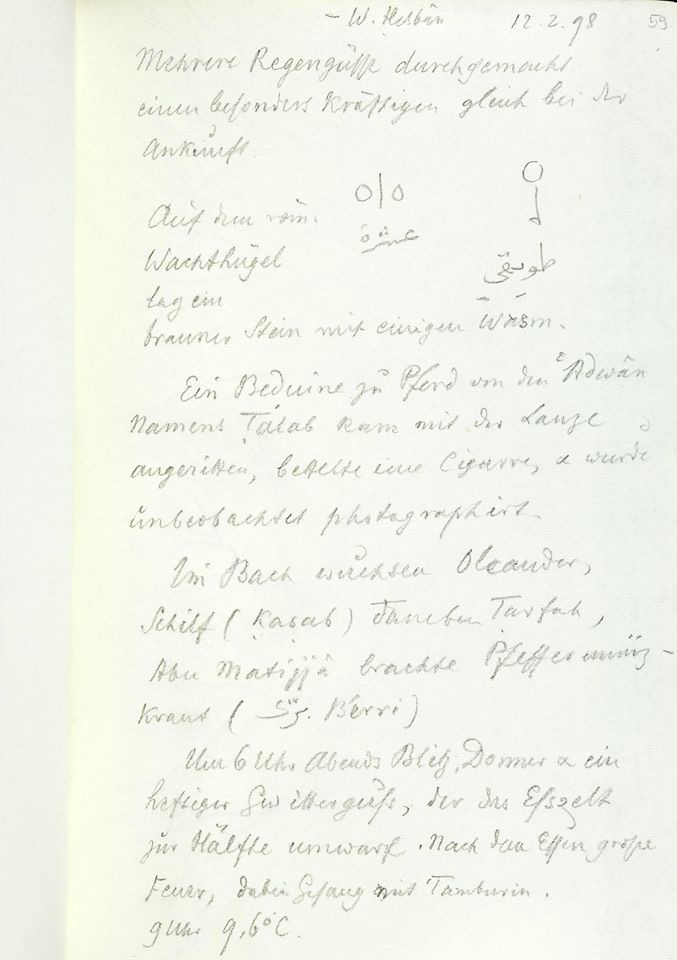 – W. Ḥesbân 12.2.98 59
Mehrere Regengüsse durchgemacht
einen besonders kräftigen gleich bei der
Ankunft.
Auf dem röm.
Wachthügel
lag ein
brauner Stein mit einigen Wasm.
Ein Beduine zu Pferd von den ʿAdwân
Namens Ṭâlab kam mit der Lanze
angeritten, bettelte eine Cigarre, & wurde
unbeobachtet photographirt
Im Bach wuchsen Oleander,
Schilf (Ḳaṣab) daneben Tarfah,
Abu Matijjâ brachte Pfeffermünz-
kraut (برّي. Berri)
Um 6 Uhr Abends Blitz, Donner & ein
heftiger Gewitterguß, der das Eßzelt
zur Hälfte umwarf. Nach dem Essen große
Feuer, dabei Gesang mit Tamburin.
9 Uhr 9,6°C.